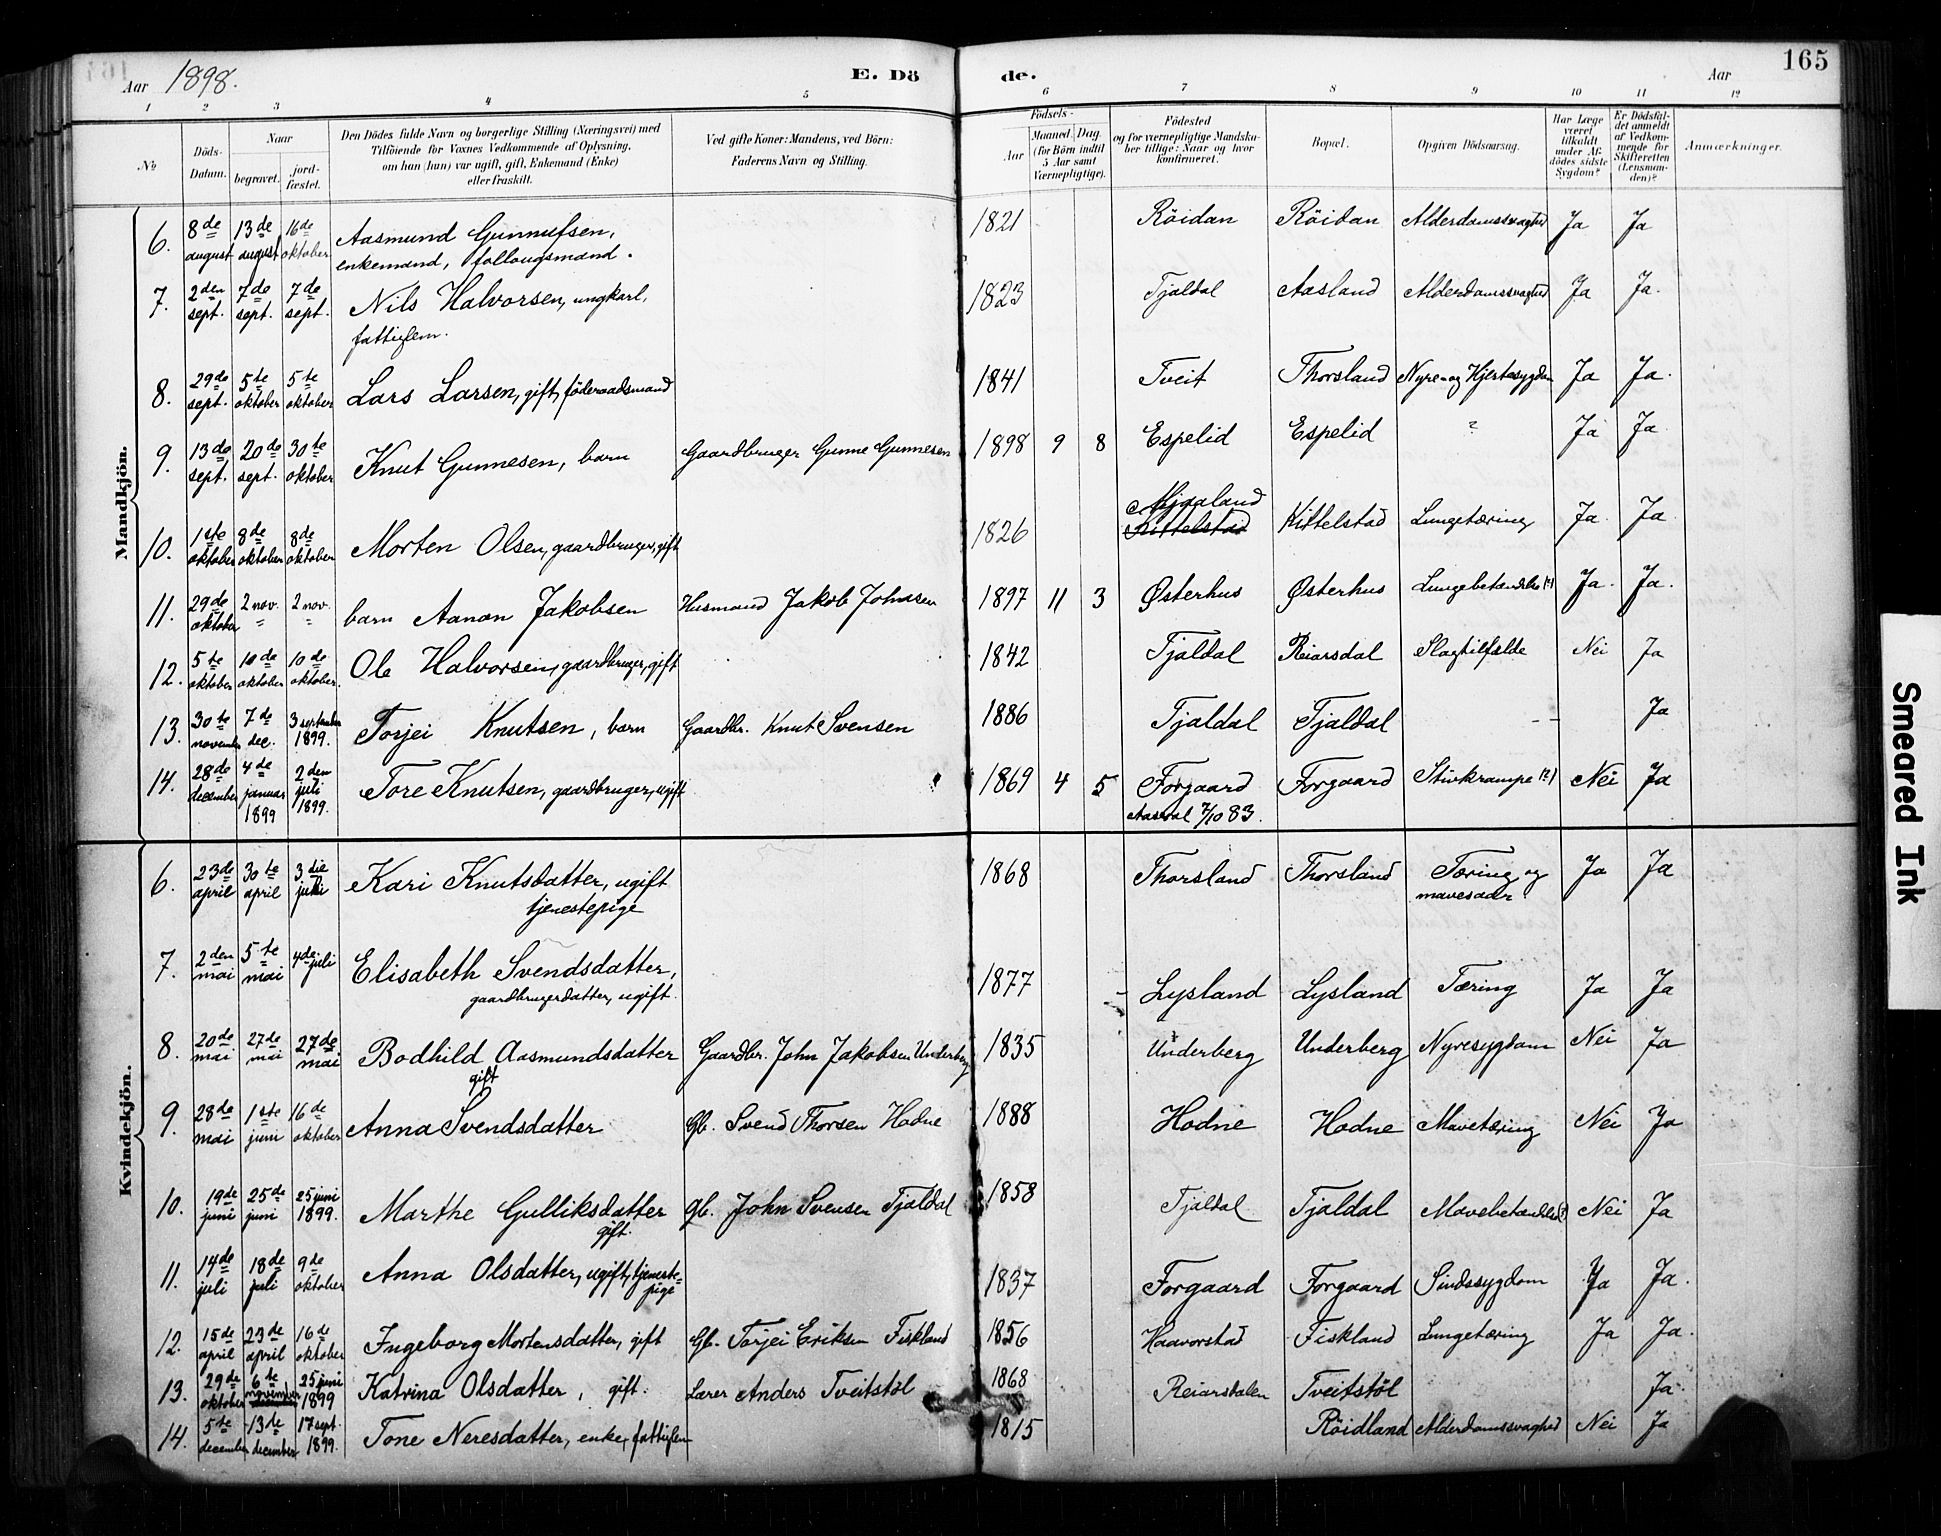 165
Aar 1898.
E. Döde.
Aar
1 2 3 4 5 6 7 8 9 10 11 12
No
Döds-Datum.
Naar
begravet.
jordfæstet.
Den Dödes fulde Navn og borgerlige Stilling (Næringsvei) med Tilföiende for Voxnes Vedkommende af Oplysning, om han (hun) var ugift, gift, Enkemand (Enke) eller fraskilt.
Ved gifte Koner: Mandens, ved Börn: Faderens Navn og Stilling.
Födsels-
Aar
Maaned Dag
(for Börn indtil 5 Aar samt Værnepligtige).
Födested og for værnepligtige Mandskaber tillige: Naar og hvor konfirmeret.
Bopæl.
Opgiven Dödsaarsag.
Har Læge været tilkaldt under Afdödes sidste Sygdom?
Er Dödsfaldet anmeldt af Vedkommende for Skifteretten (Lensmanden)?
Anmærkninger.
Mandkjön.
6. 8de august 13de august 16de oktober Aasmund Gunnufsen, enkemand, follougsmand. 1821 Röidan Röidan Alderdomssvaghed Ja Ja
7. 2den sept. 7de sept. 7de sept. Nils Halvorsen, ungkarl, fattiglem. 1823 Tjaldal Aasland Alderdomssvaghed Ja Ja.
8. 29de sept. 5te oktober 5te oktober Lars Larsen, gift, föderaadsmand 1841 Tveit Thorsland Nyre- og Hjertesygdom Ja Ja.
9. 13de sept. 20de sept. 30te oktober Knut Gunnesen, barn Gaardbruger Gunne Gunnesen 1898 9 8 Espelid Espelid ? Ja Ja.
10. 1ste oktober 8de oktober 8de oktober Morten Olsen, gaardbruger, gift 1826 Mjaaland Kittelstad Kittelstad Lungetæring Ja. Ja
11. 29de oktober 2 nov. 2 nov. barn Aanon Jakobsen Husmand Jakob Johnsen 1897 11 3 Østerhus Østerhus Lungebetændelse (?) Ja. Ja.
12. 5te oktober 10de oktober 10de oktober. Ole Halvorsen, gaardbruger, gift 1842 Tjaldal Reiarsdal Slagtilfælde Nei Ja
13. 30te november 7de dec. 3 september 1899. Torjei Knutsen, barn Gaardbr. Knut Svensen 1886 Tjaldal Tjaldal - Ja
14. 28de december 4de januar 1899 2den juli 1899. Tore Knutsen, gaardbruger, ugift 1869 4 5 Forgaard Aaseral 7/10 83. Forgaard Stivkrampe (?) Nei Ja
Kvindekjön.
6. 23de april 30te april 3die juli Kari Knutsdatter, ugift tjenestepige 1868 Thorsland Thorsland Tæring og mavesaar Ja Ja
7. 2den mai 5te mai 4de juli Elisabeth Svendsdatter, gaardbrugerdatter, ugift. 1877 Lysland Lysland Tæring Ja Ja
8. 20de mai 27de mai 27de mai Bodhild Aasmundsdatter gift Gaardbr. John Jakobsen Underberg 1835 Underberg Underberg Nyresygdom Nei Ja
9. 28de mai 1ste juni 16de oktober Anna Svendsdatter Gb. Svend Thorsen Hodne 1888 Hodne Hodne Mavetæring Nei Ja
10. 19de juni 25de juni 25 juni 1899. Marthe Gulliksdatter gift. Gb. John Svensen Tjaldal 1858 Tjaldal Tjaldal Mavebetændelse (?) Nei Ja
11. 14de juli 18de juli 9de oktober Anna Olsdatter, ugift, tjenestepige 1837 Forgaard Forgaard Sindssygdom Ja Ja.
12. 15de april 23de april 16de oktober Ingeborg Mortensdatter, gift Gb. Torjei Eriksen Fiskland 1856 Haavorstad Fiskland Lungetæring Ja Ja.
13. 29de oktober 6te november december 25 juni 1899 Katrina Olsdatter, gift. Lærer Anders Tveitstöl 1868 Reiarsdalen Tveitstöl Ja.
14. 5te december 13de december 17 sept. 1899. Tone Neresdatter, enke, fattiglem 1815 Röidland Alderdomssvaghed Nei Ja
Smeared Ink